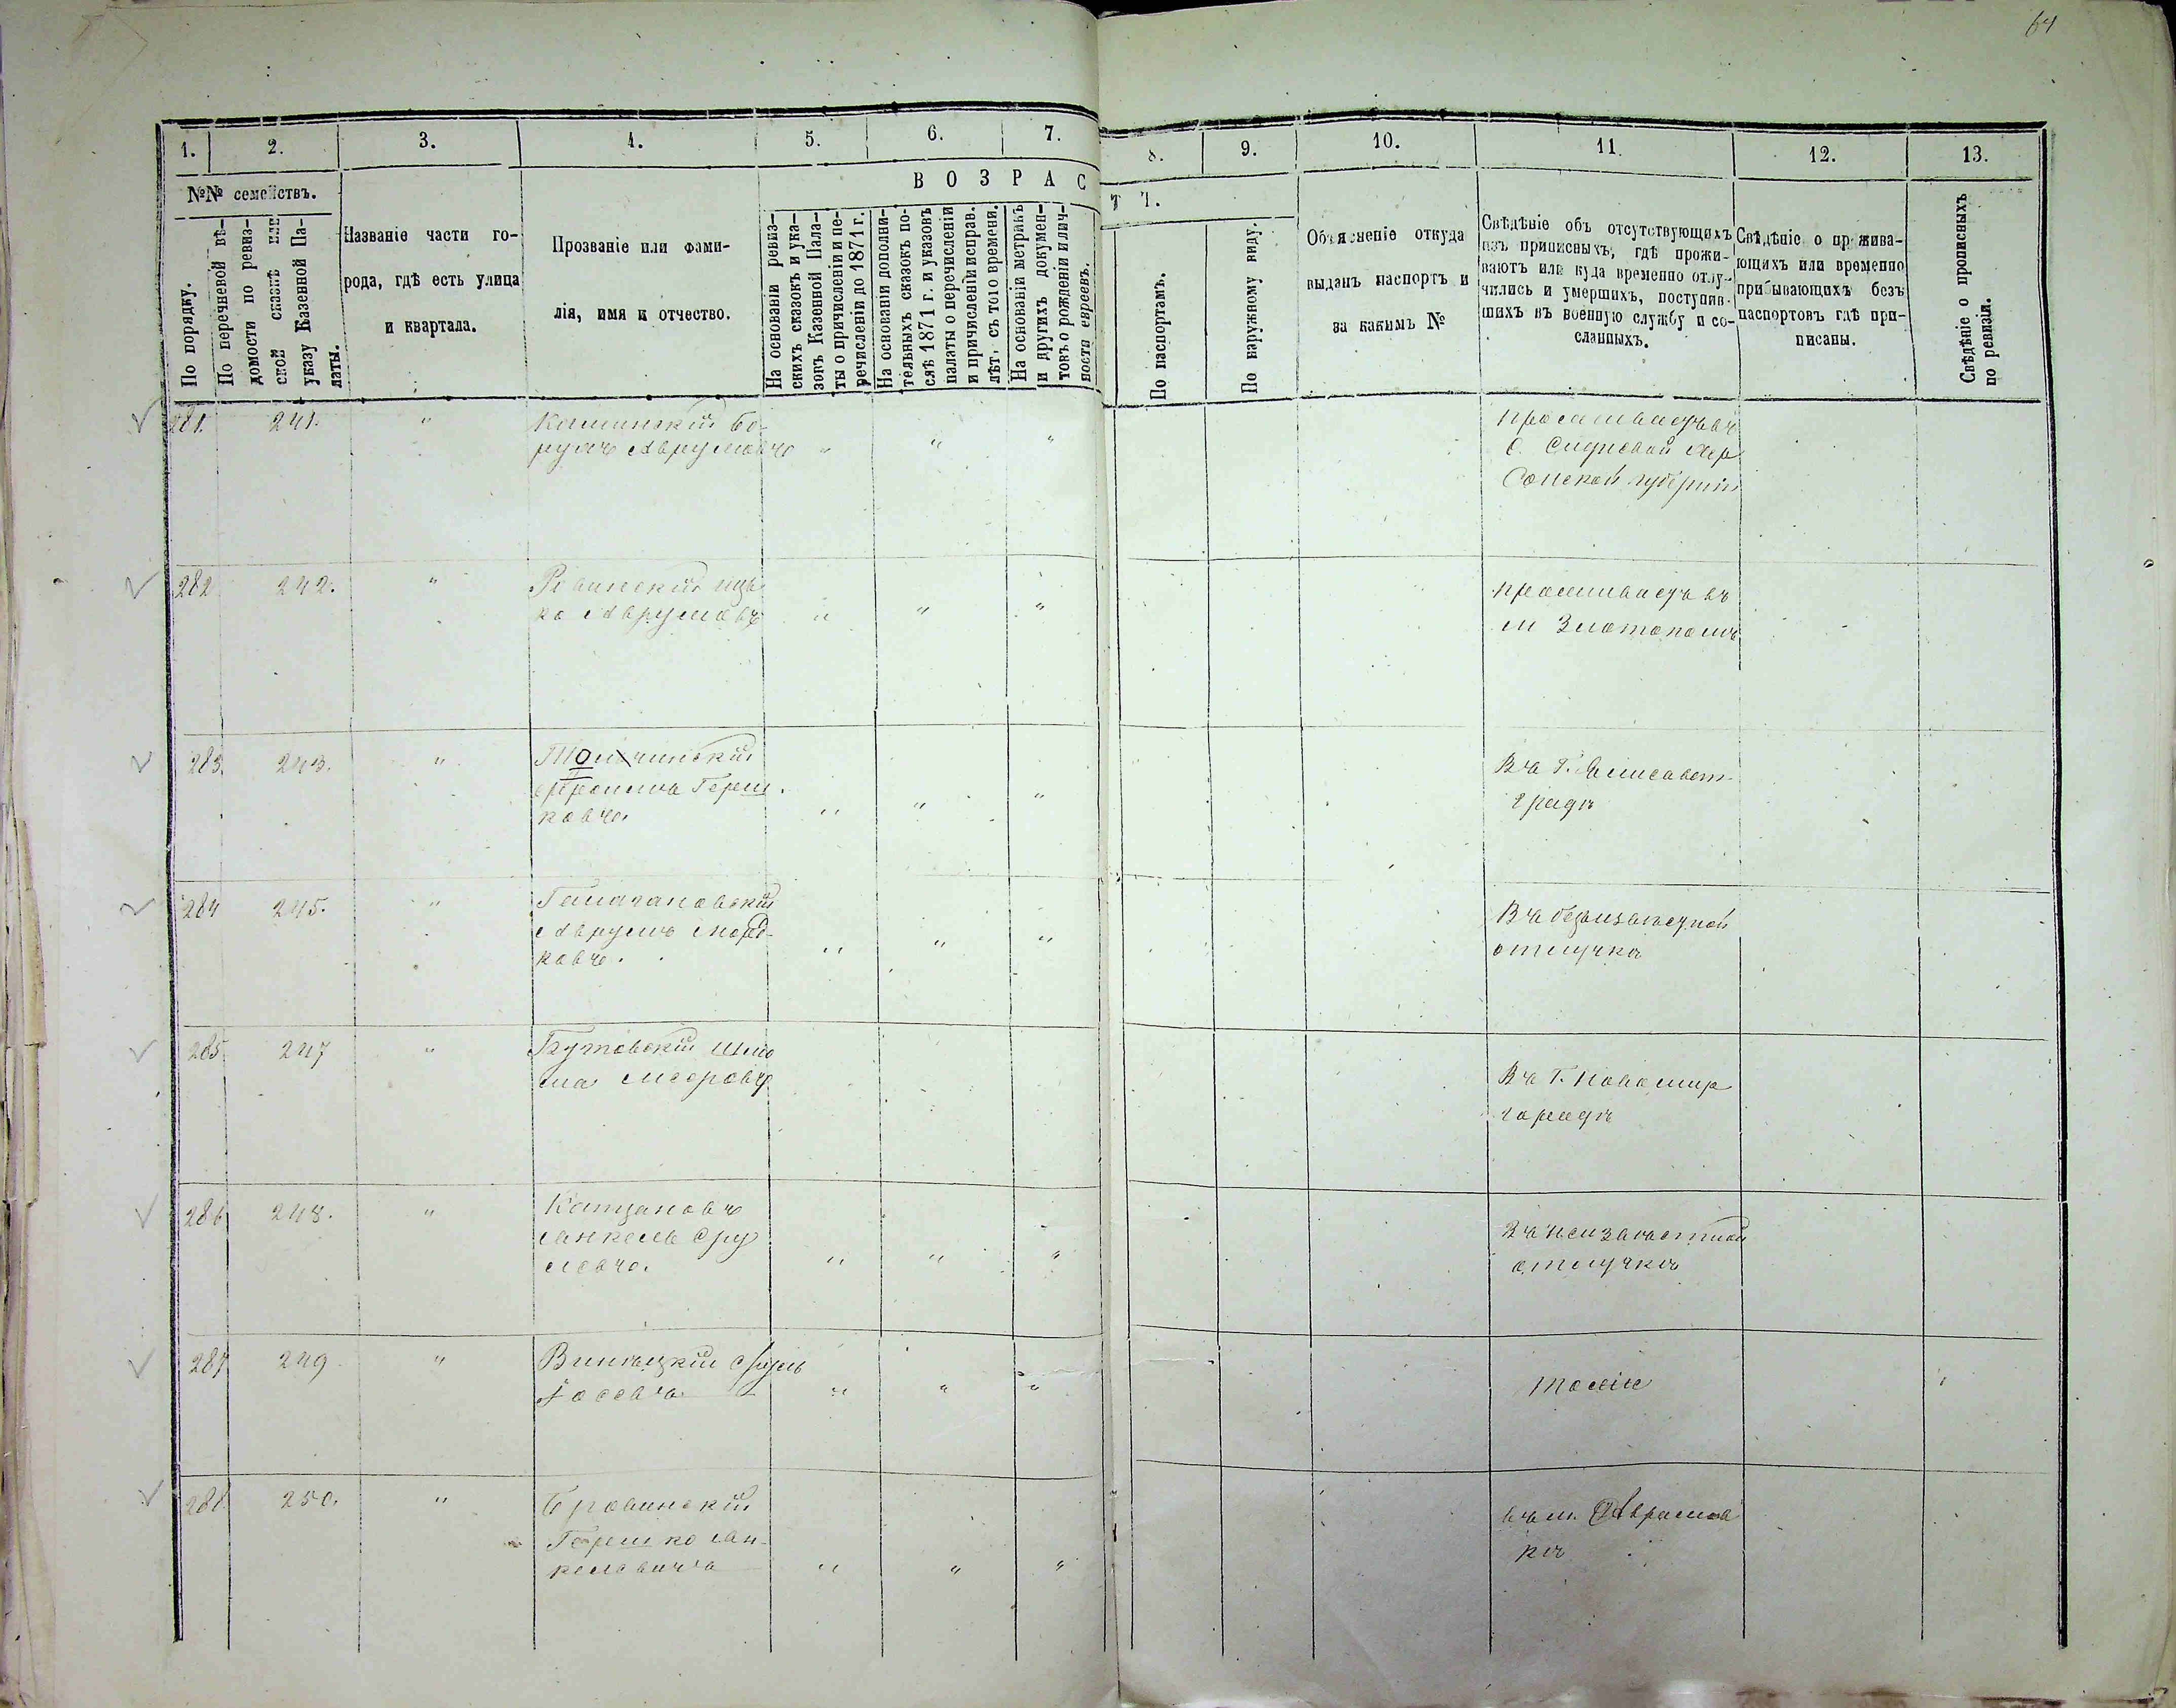 64
1. 2. 3. 4. 5. 6. 7. 8. 9. 10. 11. 12. 13.
№№ семействъ.
По порядку.
По перечневой вѣ-
домости по ревиз-
ской сказкѣ или
указу Казенной Па-
латы.
Названіе части го-
рода, гдѣ есть улица
и квартала.
Прозваніе или фами-
лія, имя и отчество.
ВОЗРАСТ Т.
На основаніи ревиз-
скихъ сказокъ и ука-
зовъ Казенной Пала-
ты о причисленіи и пе-
речисленіи до 1871 г.
На основаніи дополни-
тельныхъ сказокъ по-
слѣ 1871 г. и указовъ
палаты о перечисленіи
и причисленіи исправ.
лѣт. съ того времени.
На основаніи метрикъ
и другихъ докумен-
товъ о рожденіи и лич-
ности евреевъ.
По паспортамъ.
По наружному виду.
Объясненіе откуда
выданъ паспортъ и
за какимъ №
Свѣдѣніе объ отсутствующихъ
изъ приписныхъ, гдѣ прожи-
ваютъ или куда временно отлу-
чились и умершихъ, поступив-
шихъ въ военную службу и со-
сланныхъ.
Свѣдѣніе о прожива-
ющихъ или временно
прибывающихъ безъ
паспортовъ гдѣ при-
писаны.
Свѣдѣніе о прописныхъ
по ревизіи.
281. 241. " Каминскій Бо-
рухъ Аврумовъ " " "
проживаетъ въ
Хер
сонской губерніи
282 242. " Ровинскій Иць
ко Аврумовъ " " "
проживаетъ въ
м Златополѣ
283. 243. " Герш
ковъ. " " "
Въ Г. Елисавет-
градѣ
284 245. " Аврумъ Морд-
ковъ. " " "
Въ безъизвестной
отлучкѣ
285. 247 " Бутовскій Шлио
ма Мееровъ
Въ Г. Новомир
городѣ
286 248. " Кацановъ
Янкель Сру
левъ. " " "
Въ неизвестной
отлучкѣ
287 249 " Винницкій Сруль
Іосевъ " " "
Тоже
288 250. " Бровинскій
Гершко Ян-
келевичъ " " "
въ м. Аврамов
кѣ